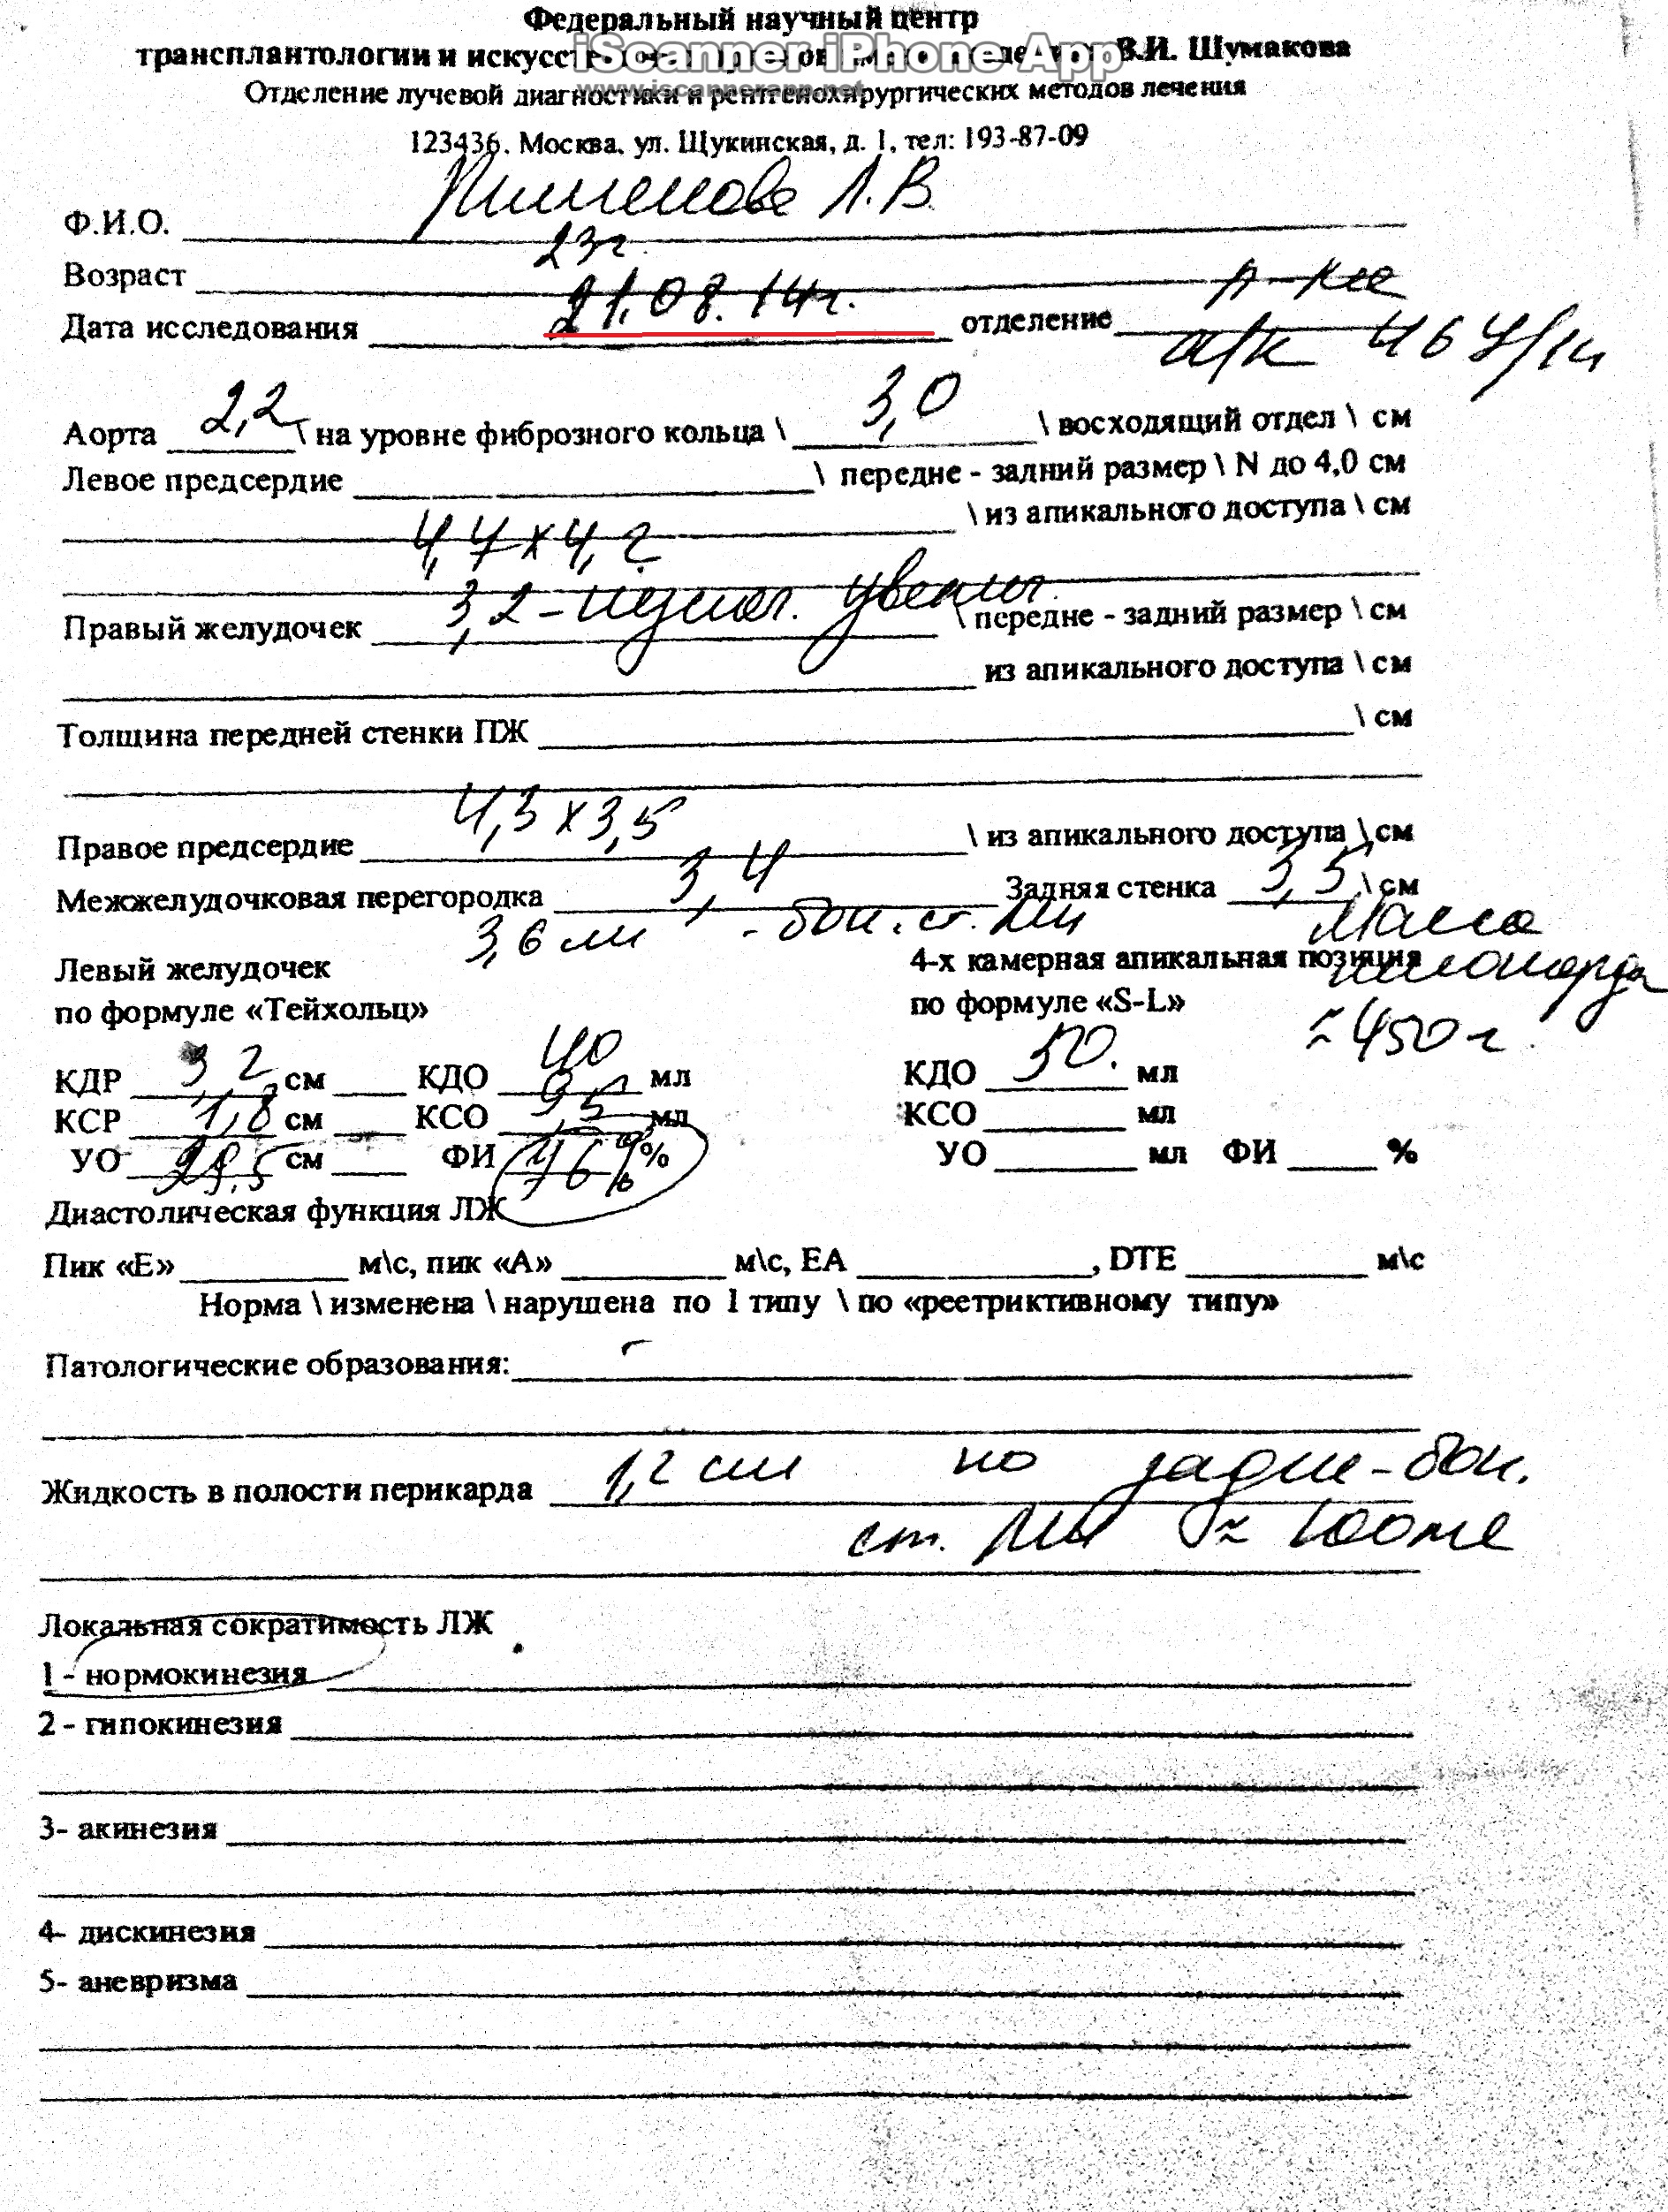 Федеральный научный центр
трансплантологии и В.И. Шумакова
iScanner iPhone App
www.iscannerapp.net
Отделение лучевой диагностики и рентгенохирургических методов лечения
123436. Москва. ул. Щукинская, д. 1, тел: 193-87-09
Ф.И.О. Л.В.
Возраст 23г.
Дата исследования 21.08.14г. отделение п-ка
а/к 467/14
Аорта 2,2 \ на уровне фиброзного кольца \ 3,0 \ восходящий отдел \ см
Левое предсердие \ передне - задний размер \ N до 4,0 см
\ из апикального доступа \ см
4,7 х 4,2
Правый желудочек 3,2 - увелич. \ передне - задний размер \ см
из апикального доступа \ см
Толщина передней стенки ПЖ \ см
Правое предсердие 4,3 х 3,5 \ из апикального доступа \ см
Межжелудочковая перегородка 3,4 Задняя стенка 3,5 \ см
3,6 см - бок. ст. ЛЖ Масса
Левый желудочек 4-х камерная апикальная позиция миокарда
по формуле «Тейхольц» по формуле «S-L» ≈450г.
КДР 3,2 см КДО 40 мл КДО 50. мл
КСР 1,8 см КСО 9,5 мл КСО мл
УО см ФИ 76% % УО мл ФИ %
Диастолическая функция ЛЖ
Пик «Е» м\с, пик «А» м\с, ЕА , DTE м\с
Норма \ изменена \ нарушена по 1 типу \ по «реетриктивному типу»
Патологические образования: -
Жидкость в полости перикарда 1,2 см по задне-бок.
ст. ЛЖ ≈ 100мл
Локальная сократимость ЛЖ
1 - нормокинезия
2 - гипокинезия
3- акинезия
4- дискинезия
5- аневризма